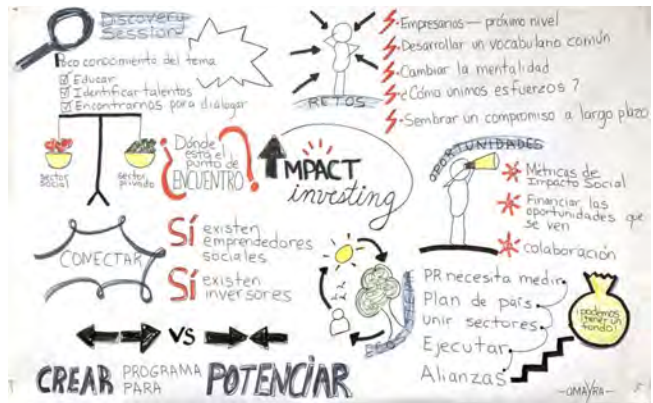 Discovery
Session
Poco conocimiento del tema
Educar
Identificar talentos
Encontrarnos para dialogar
sector
social
sector
privado
¿Dónde
está el
punto de
ENCUENTRO?
RETOS
Empresarios — próximo nivel
Desarrollar un vocabulario común
Cambiar la mentalidad
¿Cómo unimos esfuerzos?
Sembrar un compromiso a largo plazo
IMPACT
investing
OPORTUNIDADES
Métricas de
Impacto Social
Financiar las
oportunidades que
se ven
colaboración
CONECTAR
Sí existen
emprendedores
sociales
Sí existen
inversores
ECOSISTEMA
PR necesita medir
Plan de país
unir sectores
Ejecutar
Alianzas
¡podemos
tener un
fondo!
VS
CREAR PROGRAMA
PARA POTENCIAR
-OMAYRA-